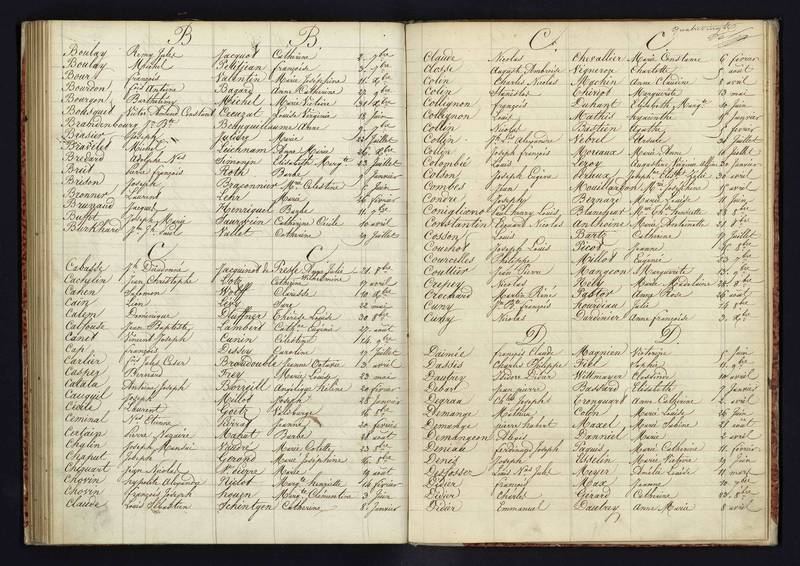 B B
Boulay Remy Jules Jacquot Catherine 2. 7bre
Boulay Michel Petitjean françoise 3. 7bre
Bour françois Valentin Marie Joséphine 11. Xbre
Bourdon Antoine Bazard Anne Catherine 22. 9bre
Bourgon Barthélemy Michel Marie Victoire 31 Xbre
Bousquet Victor Armand Constant Creuzat Louis Virginie 18 Juin
Brabandenbourg Jn Bte Beauguillaume Anne
Brasier Joseph Marie 22 Juillet
Bravelet Michel Leichnam Anne Marie 26. Xbre
Brevard Adolphe Nas Simonin Elisabeth Margte 23 Juillet
Breit Pierre françois Roth Barbe 9 Janvier
Brison Joseph Braconnier Mse Célestine 5 Juin
Bronner Laurent Lehr Marie 26 février
Brunaud Jacques Henriquel Barbe 11. 7bre
Bufft Joseph Marie Saurwein Catherine Cécile 10 avril
Burkhard Jn Gge Louis Vallet Catherine 29 Juillet
C C
Cabasse Jh Dieudonné Jacquinot de Presle Anne Julie Wilhelmine 21. 8bre
Cachelin Jean Christophe Catherine 17 avril
Cahen Salomon Clarisse 10. Xbre
Caïn Léon Lévy Sara 22 mai
Calem Dominique Pluffner Thérèse Louise 30 8bre
Calfouse Jean Baptiste Lambert Cathne Eugénie 27. août
Canet Vincent Joseph Canin Célestine 14. 9bre
Cap françois Desloy Caroline 17 Juillet
Carlier Jules César Broudouble Jeanne Octavie 3 avril
Casper Bernard Frey Marie Louise 23 mai
Catala Antoine Joseph Borreill Angélique Hélène 20 février
Cauquil Joseph Millot Joseph 28 Janvier
Cécile Laurent Goetz Valburge 16 8bre
Ceminal Nas Etienne Pierrat Jeanne 20 février
Certain Pierre Nazaire Machat Barbe 21 août
Chalin Joseph Mansui Vallore Marie Colette 23 8bre
Chaput Joseph Gérard Marie Joséphine 16. 8bre
Chiquart Jean Nicolas Marie 18 août
Chovin hypolite Alexandre Riclot Margte henriette 14 février
Chovin françois Joseph houzn Margte Clémentine 3 Juin
Claude Louis Sébastien Schentgen Catherine 8 Janvier
C. C
Claude Nicolas Chevallier Marie Constance 6 février
Classe August. Ambroise Vigneron Charlotte 5 août
Colin Charles Nicolas Machin Anne Claudine 8 avril
Colin Stanislas Thiriot Marguerite 13 mai
Collignon François Duhant Elisabeth Margte 4 Juin
Collignon Louis Mathis hyacinthe 15 Janvier
Collin Nicolas Bastien Agathe 5 février
Collin Alexandre Nebrel Ursule 31 Juillet
Collin Joseph françois Moreaux Marie Anne 10 Juillet
Colombié Louis Leroy Augustine Virginie 30 Janvier
Colson Joseph Eugène 30 avril
Combes Jean Mouillardon Mie Joséphine 15 avril
Condre Joseph Bernard Marie Louise 11 Juin
Conigliano Paul henry Louis Blanchart Henriette 28 8bre
Constantin Edouard Nicolas Anthoine Marie Antoinette 21 8bre
Cosson Louis Bartz Catherine 3 Juillet
Couchot Joseph Louis Picot Jeanne 30 8bre
Courcelles Philippe Millot Eugénie 23 7bre
Couttier Jean Pierre Mangeon Marguerite 13. 9bre
Crepey Nicolas Kelly Marie Madeleine 28 Xbre
Crochard Martin Réné Pastor Anne Rose 26 août
Cuny Jn Bte françois Rouvieau Julie 24 8bre
Cuny Nicolas Dardinier Anne françoise 3. Xbre
D D.
Dainée françois Claude Magnien Victorine 5 Juin
Dassis Charles Philippe Sophie 11. 9bre
Daubrey Isidore Didier Wittmayer Christine 30 avril
Debert Jean pierre Bassard Elisabeth 9 Janvier
Degraa Joseph Trongnart Anne Catherine 2 avril
Demange Mathieu Colon Marie Louise 26 Juin
Demange pierre hubert Maxel Marie Sabine 21 août
Demangeon Alexis Danniel Marie 2 avril
Deneau ferdinand Joseph Pagnis Marie Catherine 11 février
Denis Joseph Marie Victoire 12 Juin
Desfosser Louis Nas Jules Meyer Amélie Louise 11 mars
Didier françois Moux Jeanne 10 7bre
Didier Charles Gérard Catherine 23. 8bre
Didier Emmanuel Daubrey Anne Marie 8 avril